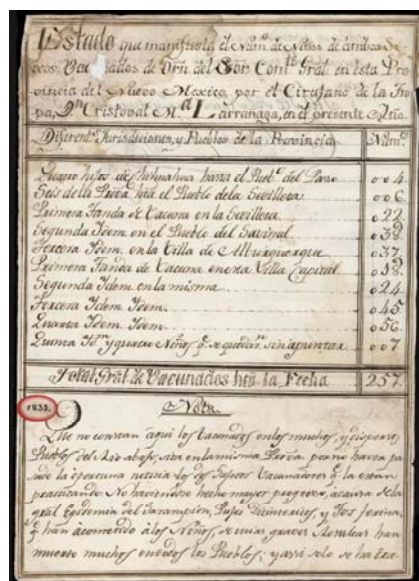 Estado que manifiesta el Num.o de Niños de ambos
sexos Vacunados de Orn del Sor Com.te Gral en esta Pro
vincia del Nuevo Mexico, por el Cirujano de la Tro
pa, Dn Cristoval M.a Larrañaga, en el presente Año.
Diferent.s Jurisdiciones, y Pueblos de la Provincia. Num.o
Quatro hijos de Chihuahua hasta el Pueb.o del Paso 004
Seis de la Prov.a hta el Pueblo de la Sevilleta 006
Primera Tanda de Vacuna en la Sevilleta 022
Segunda Idem en el Pueblo del Savinal 038
Tercera Idem. en la Villa de Alburquerque 037
Primera Tanda de Vacuna en esta Villa Capital 018
Segunda Idem en la misma 024
Tercera Idem Idem 045
Quarta Idem Idem 056
Quinta Id.m y quatro Niños q.e se quedar.n sin apuntar 007
Total Gral de Vacunados hta la Fecha 257
1833.
Nota
Que no constan aqui los Vacunados en los muchos, y dispersos
Pueblos del Rio abajo, sita en la misma Prov.a por no haver pa
sado la oportuna noticia los dos Sugetos Vacunadores q.e la estan
practicando. No haviendose hecho mayor progreso, a causa de la
gral Epidemia del Sarampion, Pujos Disintericos, y Tos ferina,
q.e han acometido a los Niños, de cuias graves dolencias han
muerto muchos en todos los Pueblos; y assi solo se ha